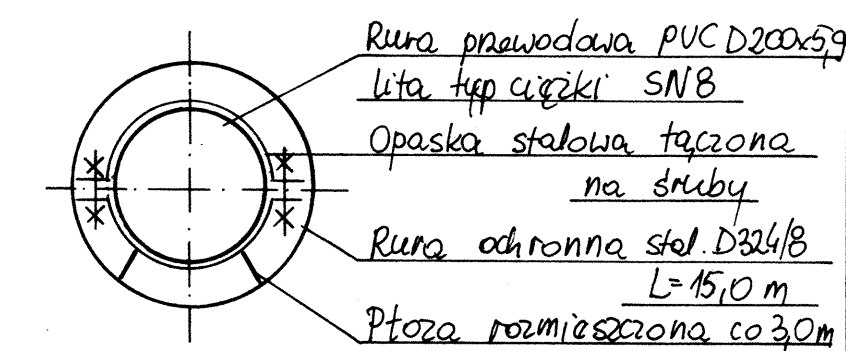 Rura przewodowa PVC D200x5,9
lita typ ciężki SN8
Opaska stalowa łączona
na śruby
Rura ochronna stal. D324/8
L=15,0 m
Płoza rozmieszczona co 3,0m